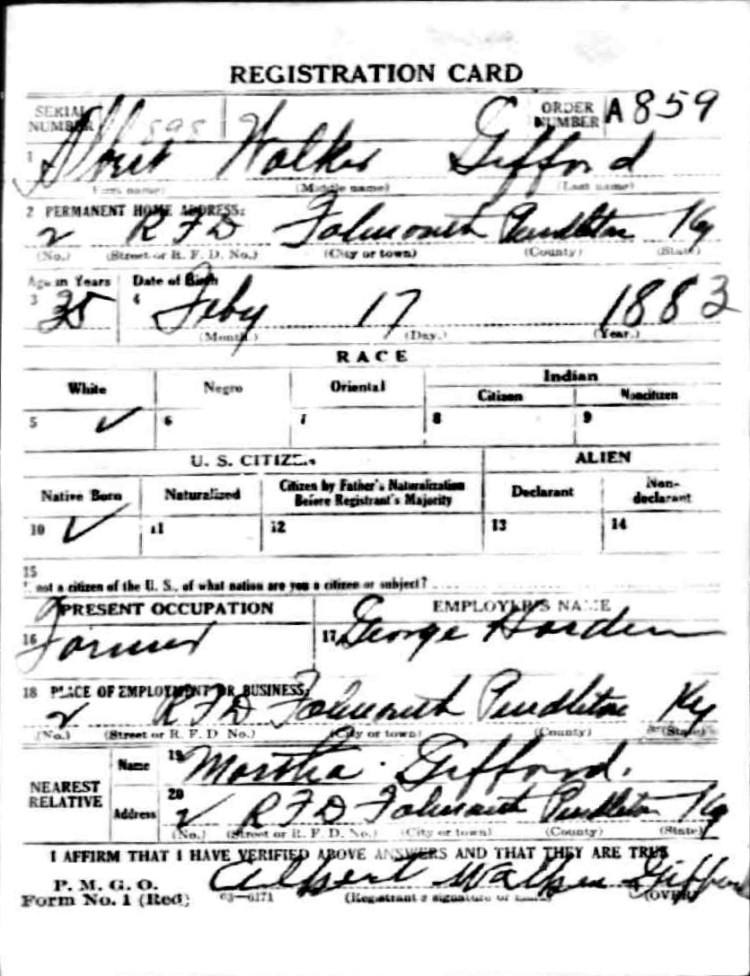 REGISTRATION CARD
SERIAL NUMBER 595 ORDER NUMBER A859
1 Albert Walker Gifford
(First name) (Middle name) (Last name)
2 PERMANENT HOME ADDRESS:
2 RFD Falmouth Pendleton Ky
(No.) (Street or R. F. D. No.) (City or town) (County) (State)
Age in Years Date of Birth
3 35 4 Feby 17 1883
(Month.) (Day.) (Year.)
RACE
White Negro Oriental Indian
Citizen Noncitizen
5 ✓ 6 7 8 9
U. S. CITIZEN ALIEN
Native Born Naturalized Citizen by Father's Naturalization Before Registrant's Majority Declarant Non-declarant
10 ✓ 11 12 13 14
15
not a citizen of the U. S., of what nation are you a citizen or subject?
PRESENT OCCUPATION EMPLOYER'S NAME
16 Farmer 17 George
18 PLACE OF EMPLOYMENT OR BUSINESS:
2 RFD Falmouth Pendleton Ky
(No.) (Street or R. F. D. No.) (City or town) (County) (State)
NEAREST RELATIVE Name 19 Martha Gifford.
Address 20 2 RFD Falmouth Pendleton Ky
(No.) (Street or R. F. D. No.) (City or town) (County) (State)
I AFFIRM THAT I HAVE VERIFIED ABOVE ANSWERS AND THAT THEY ARE TRUE
P. M. G. O.
Form No. 1 (Red) 03—6171 Albert Walker Gifford
(Registrant's signature or mark) (OVER)